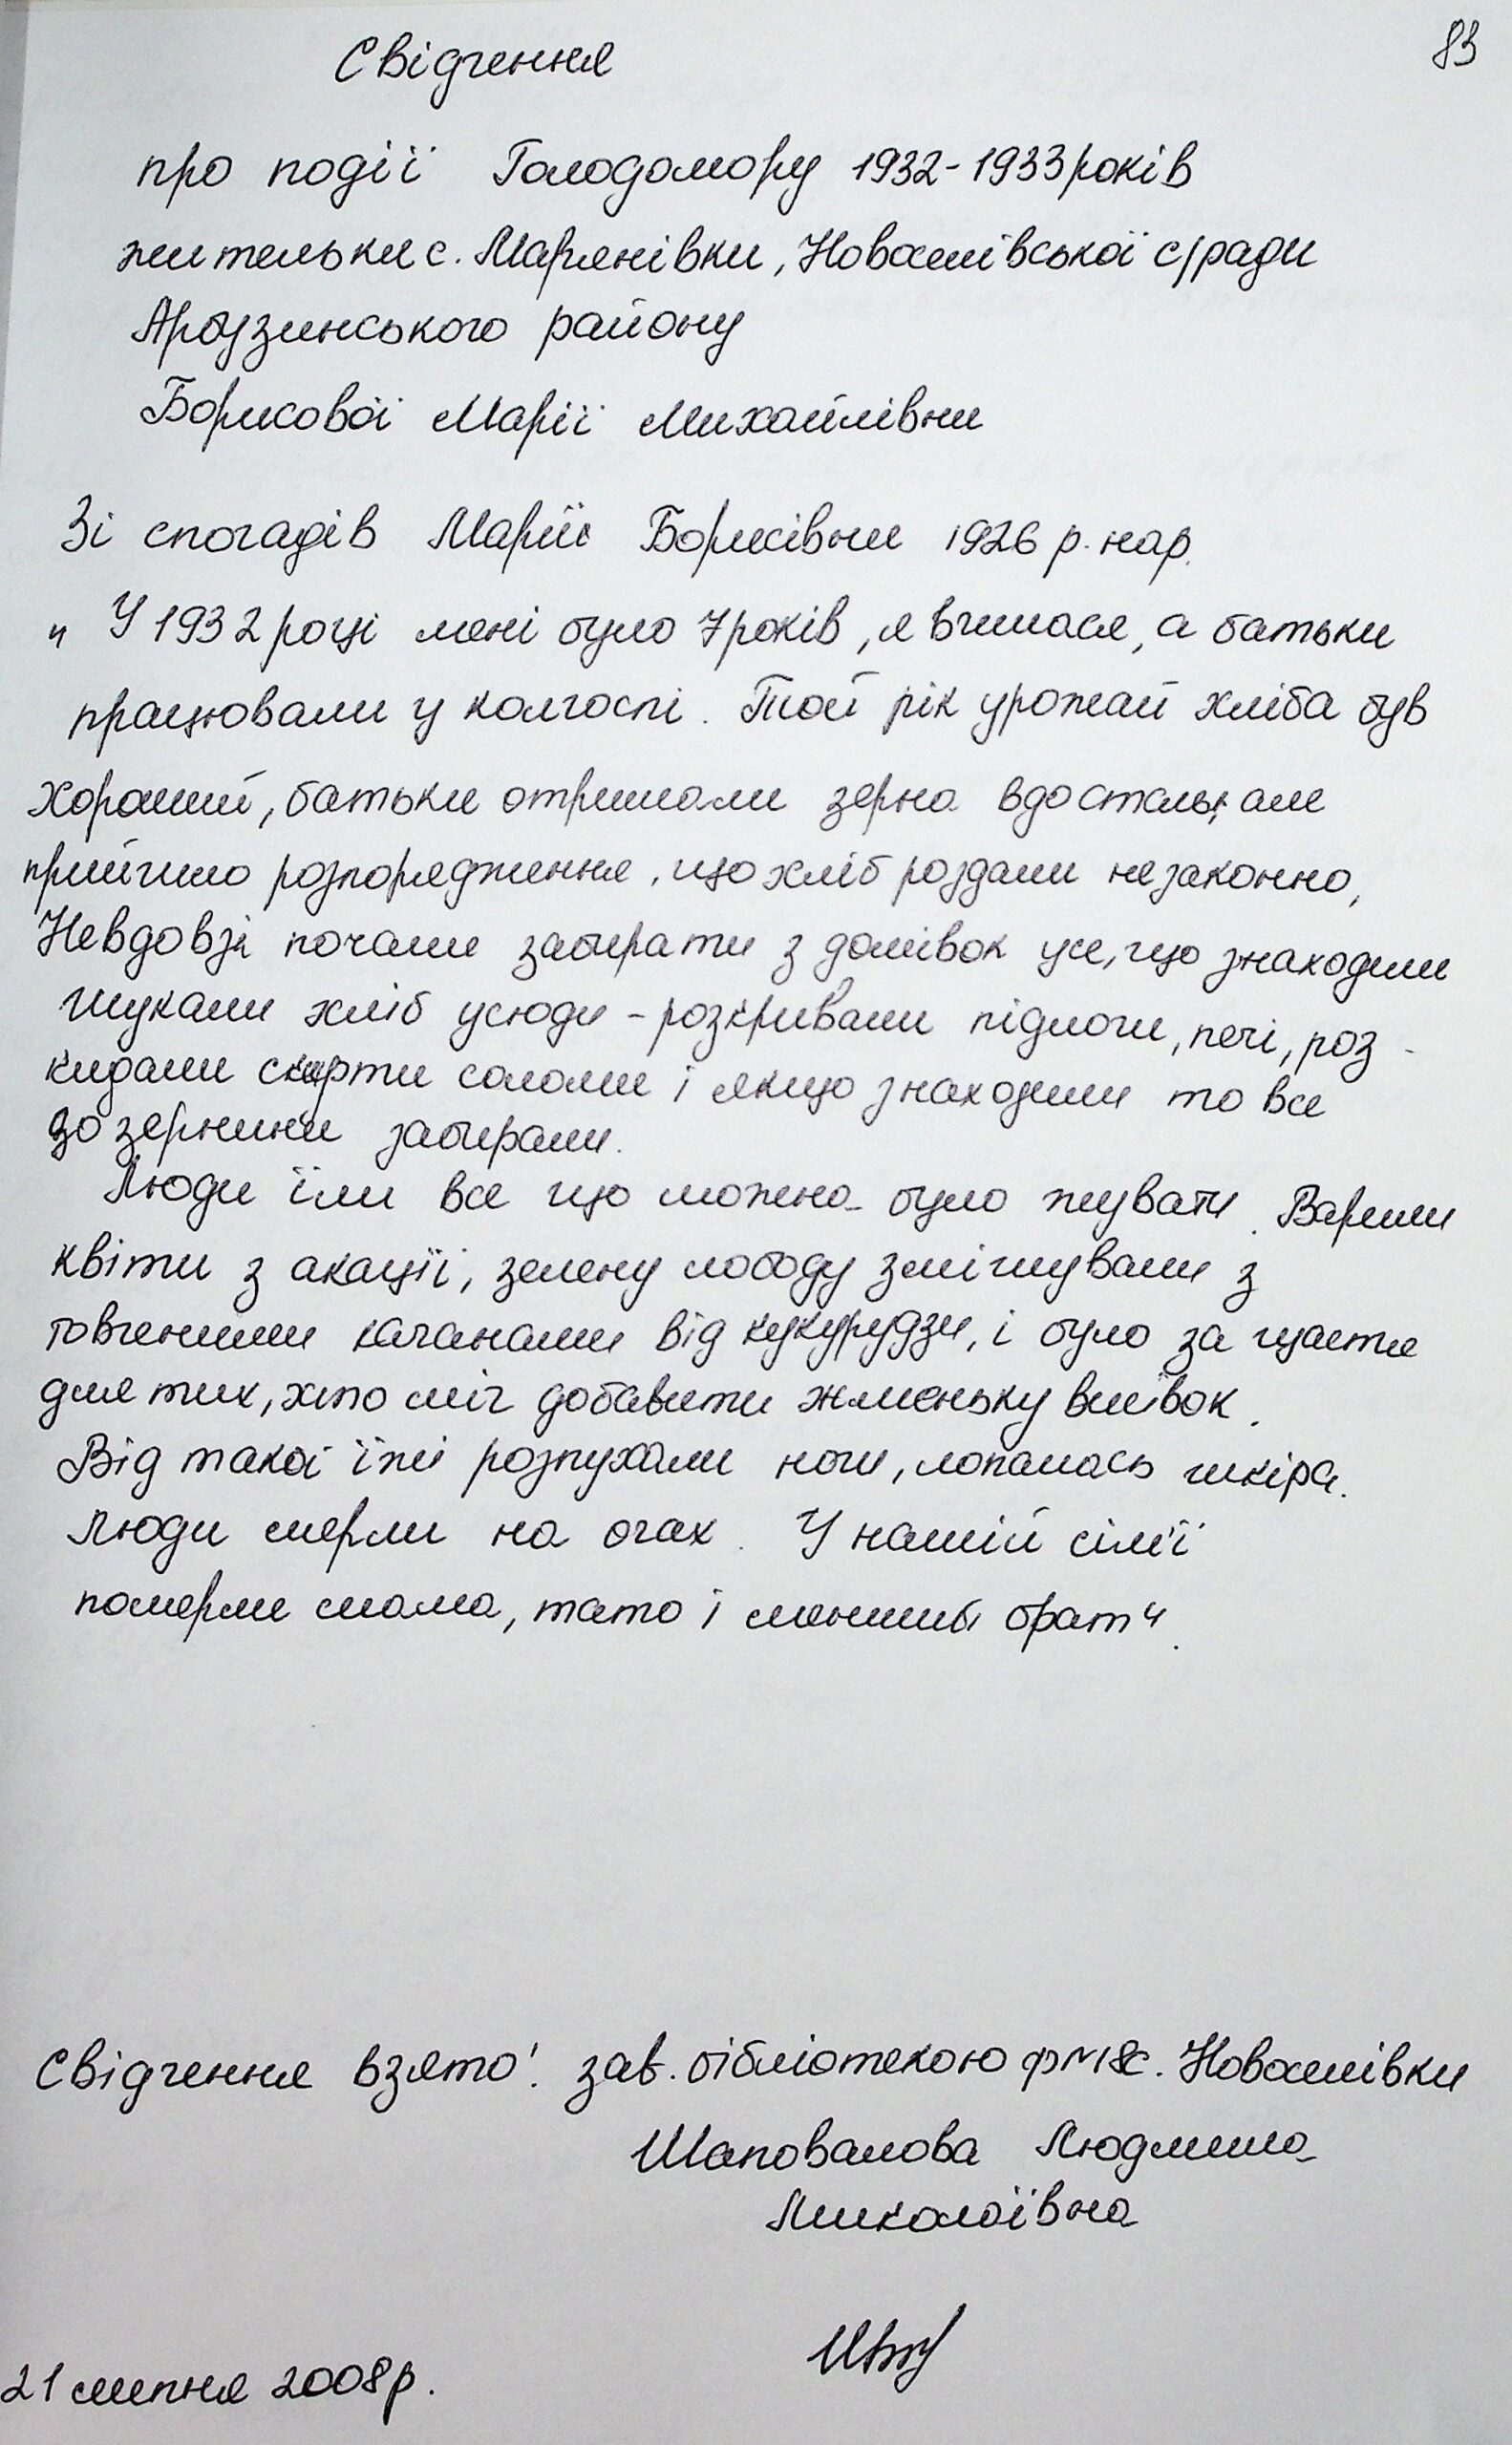 83
Свідчення
про події Голодомору 1932-1933 років
жительки с. Мар'янівки, Новоселівської с/ради
Арбузинського району
Борисової Марії Михайлівни
Зі спогадів Марії Борисівни 1926 р. нар.
„У 1932 році мені було 7 років, я вчилася, а батьки
працювали у колгоспі. Той рік урожай хліба був
хороший, батьки отримали зерна вдосталь, але
прийшло розпорядження, що хліб роздали незаконно,
Невдовзі почали забирати з домівок усе, що знаходили
шукали хліб усюди - розкривали підлоги, печі, роз-
кидали скирти соломи і якщо знаходили то все
до зернини забирали.
Люди їли все що можна було жувати. Варили
квіти з акації, зелену лободу змішували з
товченими качанами від кукурудзи, і було за щастя
для тих, хто міг добавити жменьку висівок.
Від такої їжі розпухали ноги, лопалась шкіра.
Люди мерли на очах. У нашій сім'ї
померли мама, тато і менший брат".
Свідчення взято: зав. бібліотекою ф №18 с. Новоселівки
Шаповалова Людмила
Миколаївна
21 липня 2008 р.